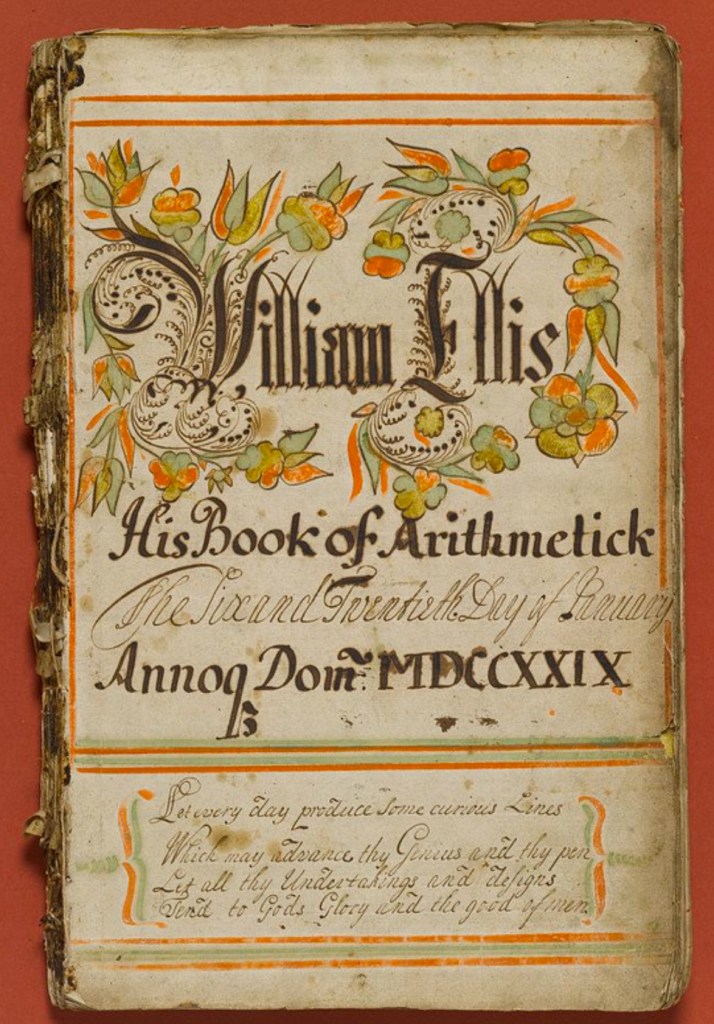 William Ellis
His Book of Arithmetick
The Six and Twentieth Day of January
Annoq Dom. MDCCXXIX
Let every day produce some curious Lines
Which may advance thy Genius and thy pen
Let all thy Undertakings and designs
Tend to Gods Glory and the good of men.